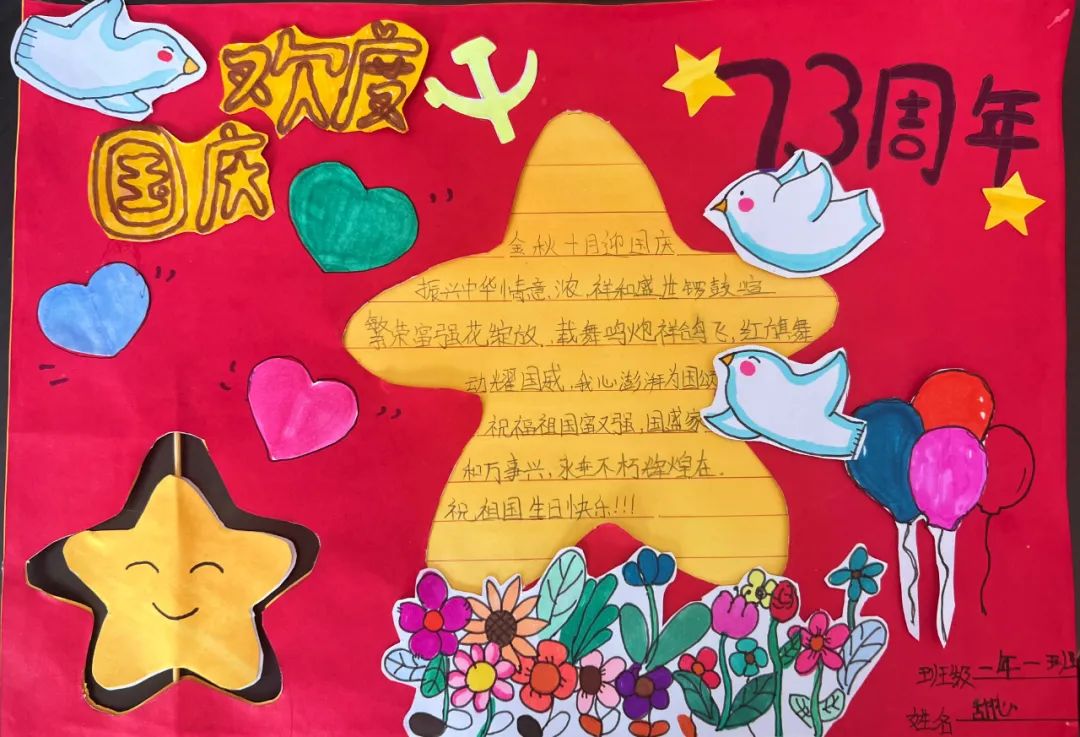 欢度
国庆
73周年
金秋十月迎国庆
振兴中华情意浓,祥和盛世锣鼓喧
繁荣富强花绽放,载舞鸣炮祥鸽飞,红旗舞
动耀国威,我心澎湃为国颂
祝福祖国富又强,国盛家
和万事兴,永垂不朽辉煌在.
祝祖国生日快乐!!!
班级 一年一班
姓名 甜心